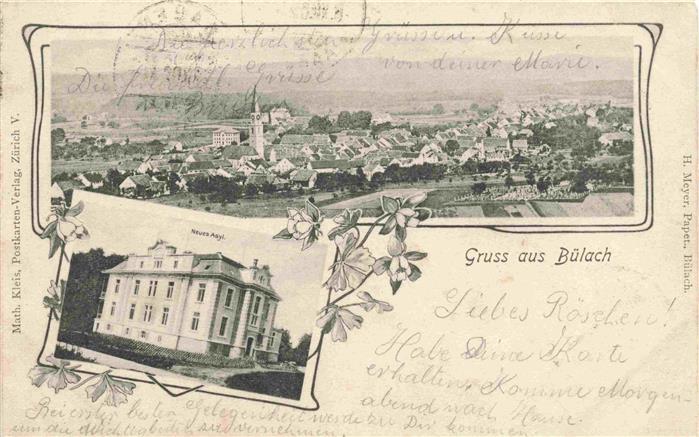 Die herzlichsten Grüsse u. Küsse
von deiner Marie.
Die Grüsse
Math. Kleis, Postkarten-Verlag, Zürich V.
H. Meyer, Papet., Bülach.
Neues Asyl.
Gruss aus Bülach
Liebes Röschen!
Habe Deine Karte
erhalten, Komme Morgen-
abend nach Hause.
Bei erster bester Gelegenheit werde zu Dir kommen
um die Wichtigkeiten zu vernehmen.